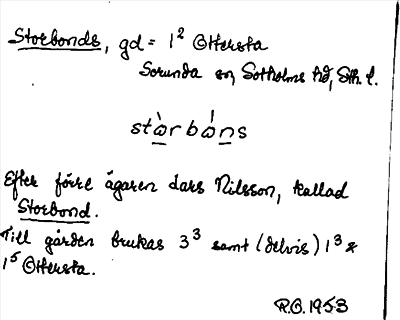 Storbonds, gd = 1² Ottersta
Sorunda sn, Sotholms hd, Sth. l.
stòrbóns
Efter förre ägaren Lars Nilsson, kallad
Storbond.
Till gården brukas 3³ samt (delvis) 1³ &
1⁵ Ottersta.
R.O. 1953